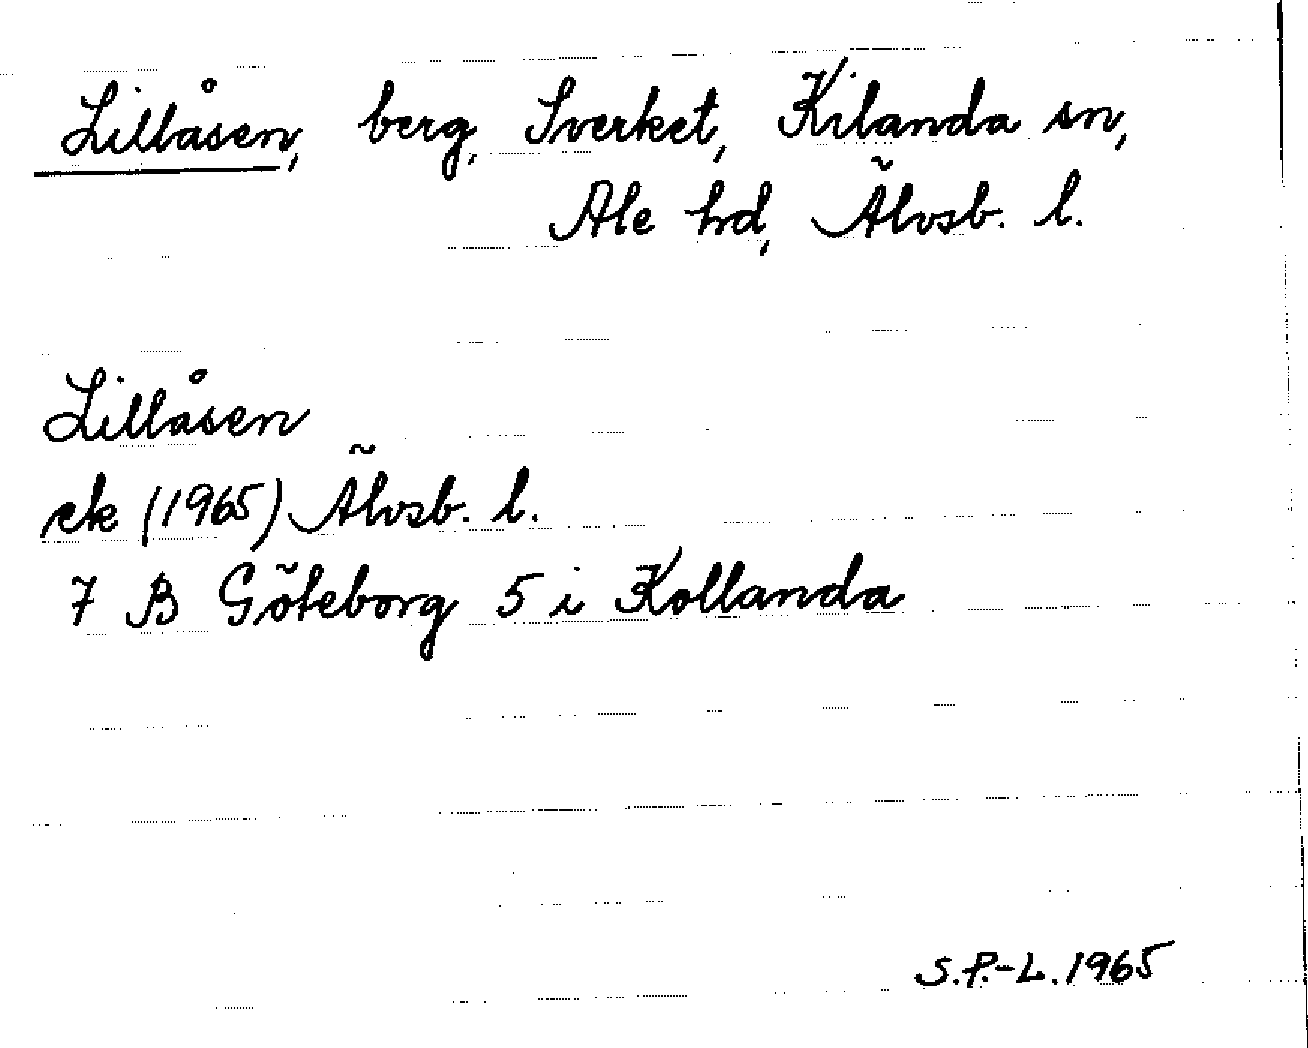 Lillåsen, berg, Sverket, Kilanda sn,
Ale hd, Älvsb. l.
Lillåsen
ek (1965) Älvsb. l.
7 B Göteborg 5 i Kollanda
S.P.-L. 1965